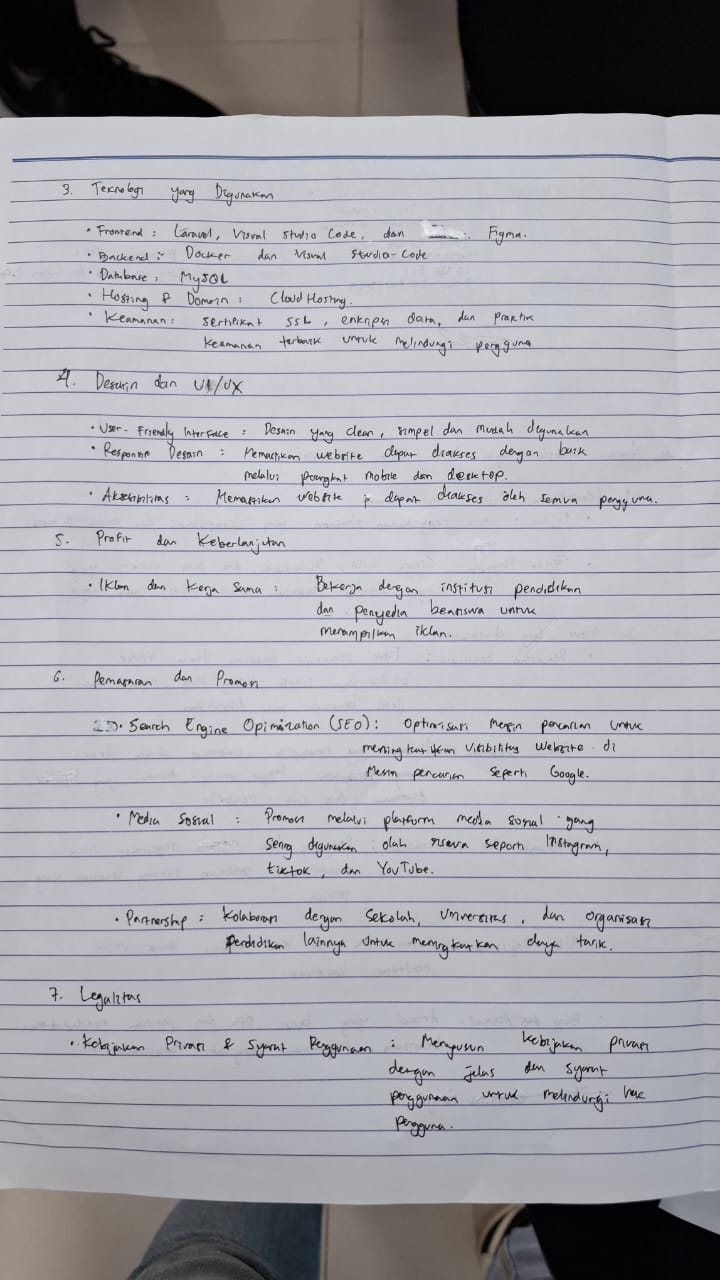 3. Teknologi yang Digunakan
• Frontend : Laravel, Visual Studio Code, dan Figma.
• Backend : Docker dan Visual Studio Code
• Database : MySQL
• Hosting & Domain : Cloud Hosting.
• Keamanan : Sertifikat SSL, enkripsi data, dan praktik
keamanan terbaik untuk melindungi pengguna
4. Desain dan UI/UX
• User-Friendly Interface : Desain yang clean, simpel dan mudah digunakan
• Responsif Desain : Memastikan website dapat diakses dengan baik
melalui perangkat mobile dan desktop.
• Aksesibilitas : Memastikan website dapat diakses oleh semua pengguna.
5. Profit dan Keberlanjutan
• Iklan dan Kerja Sama : Bekerja dengan institusi pendidikan
dan penyedia beasiswa untuk
menampilkan iklan.
6. Pemasaran dan Promosi
• Search Engine Opimization (SEO) : Optimisasi mesin pencarian untuk
meningkatkan visibilitas website di
mesin pencarian seperti Google.
• Media Sosial : Promosi melalui platform media sosial yang
sering digunakan oleh siswa seperti Instagram,
tiktok, dan YouTube.
• Partnership : Kolaborasi dengan Sekolah, Universitas, dan organisasi
pendidikan lainnya untuk meningkatkan daya tarik.
7. Legalitas
• Kebijakan Privasi & Syarat Penggunaan : Menyusun kebijakan privasi
dengan jelas dan syarat
penggunaan untuk melindungi hak
pengguna.